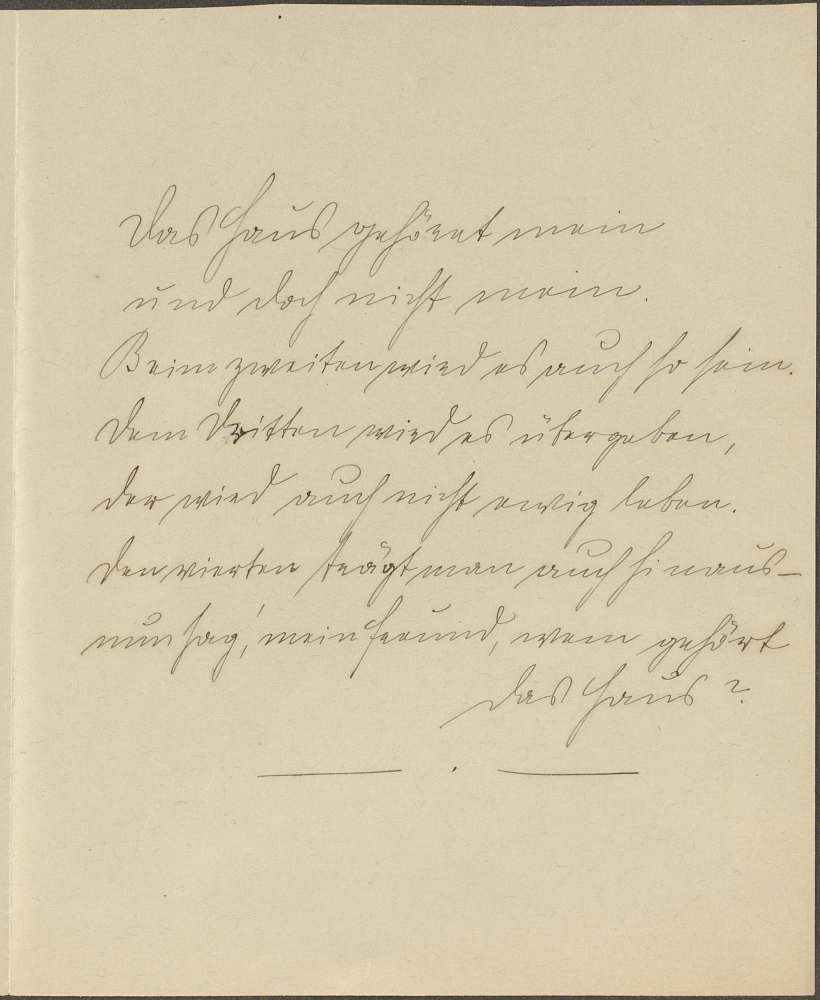 Das Haus gehöret mein
und doch nicht mein.
Beim zweiten wird es auch so sein.
Dem Dritten wird es übergeben,
der wird auch nicht ewig leben.
Den vierten trägt man auch hinaus –
nun sag', mein Freund, wem gehört
das Haus?